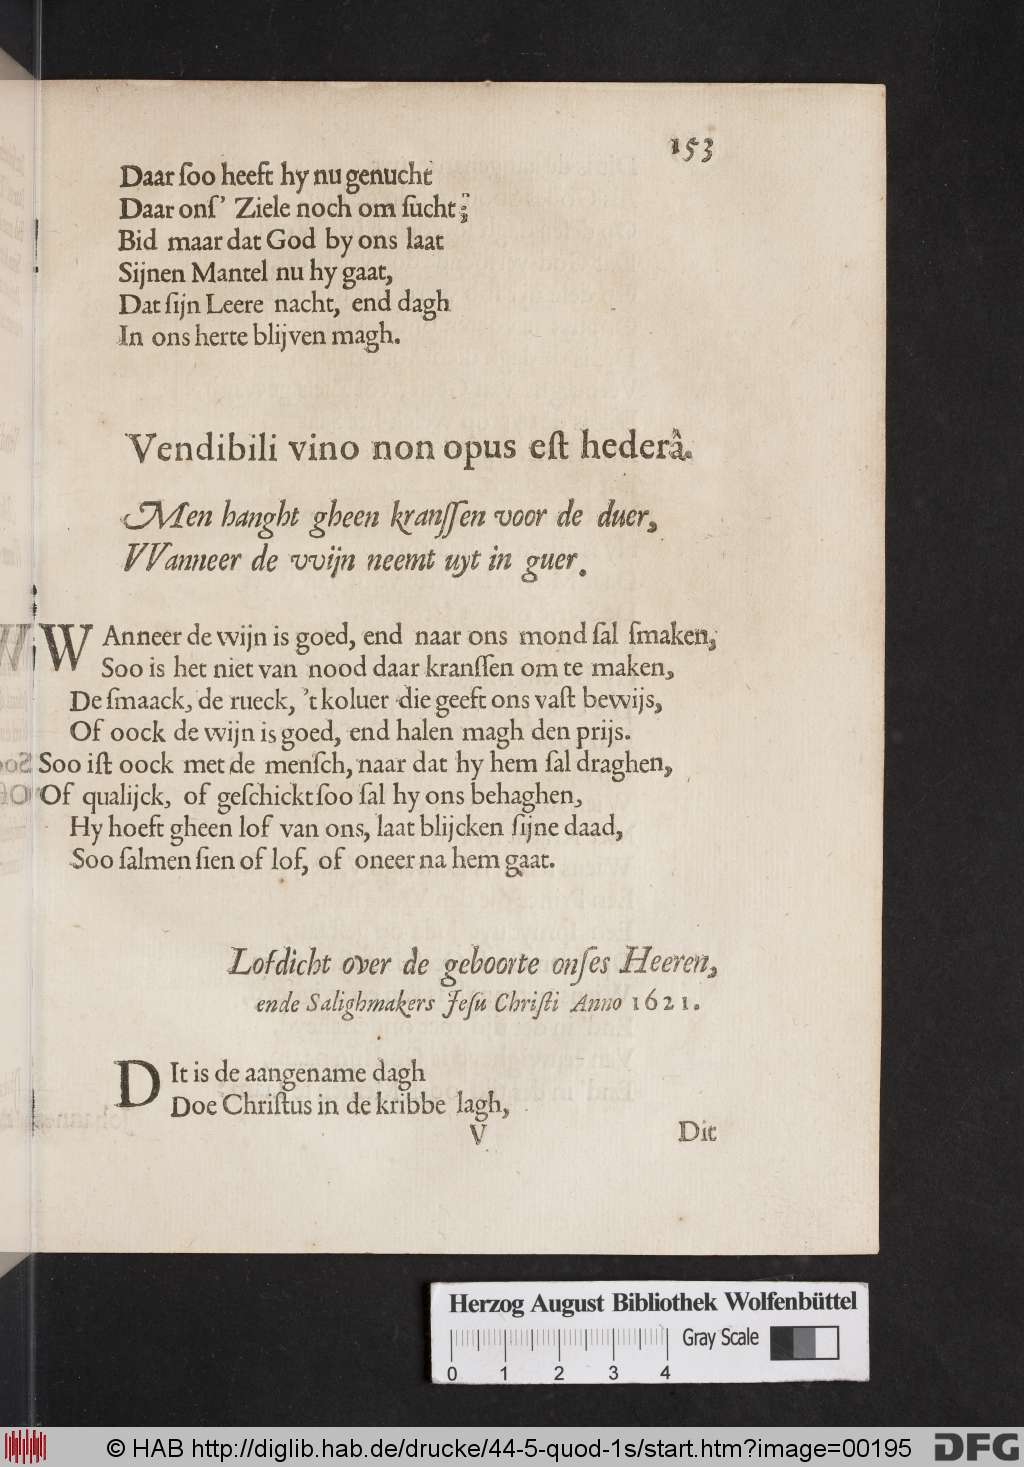 153
Daar ſoo heeft hy nu genucht
Daar onſ' Ziele noch om ſucht;
Bid maar dat God by ons laat
Sijnen Mantel nu hy gaat,
Dat ſijn Leere nacht, end dagh
In ons herte blijven magh.
Vendibili vino non opus eſt hederâ.
Men hanght gheen kranſſen voor de duer,
VVanneer de vvijn neemt uyt in guer.
WAnneer de wijn is goed, end naar ons mond ſal ſmaken,
Soo is het niet van nood daar kranſſen om te maken,
De ſmaack, de rueck, 't koluer die geeft ons vaſt bewijs,
Of oock de wijn is goed, end halen magh den prijs.
Soo iſt oock met de menſch, naar dat hy hem ſal draghen,
Of qualijck, of geſchickt ſoo ſal hy ons behaghen,
Hy hoeft gheen lof van ons, laat blijcken ſijne daad,
Soo ſalmen ſien of lof, of oneer na hem gaat.
Lofdicht over de geboorte onſes Heeren,
ende Salighmakers Jeſu Chriſti Anno 1621.
DIt is de aangename dagh
Doe Chriſtus in de kribbe lagh,
V Dit
Herzog August Bibliothek Wolfenbüttel
Gray Scale
0 1 2 3 4
© HAB http://diglib.hab.de/drucke/44-5-quod-1s/start.htm?image=00195 DFG